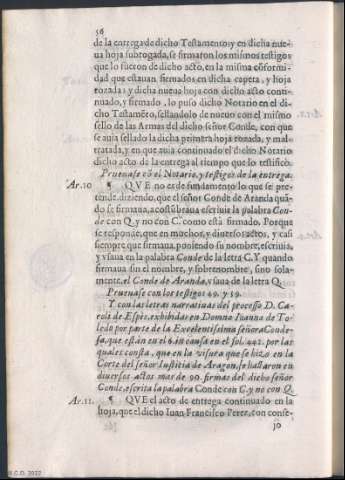 56
de la entrega de dicho Testamento: y en dicha nue-
ua hoja subrogada, se firmaron los mismos testigos
que lo fueron de dicho acto, en la misma cōformi-
dad que estauan firmados en dicha capeta, y hoja
rozada: y dicha nueua hoja con dicho acto conti-
nuado, y firmado, lo puso dicho Notario en el di-
cho Testamēto, sellandolo de nueuo con el mismo
sello de las Armas del dicho señor Conde, con que
se auia sellado la dicha primera hoja rozada, y mal-
tratada, y en que auia continuado el dicho Notario
dicho acto de la entrega al tiempo que lo testificò.
Prueuase cō el Notario, y testigos de la entrega.
Ar. 10 ¶ QVE no es de fundamento lo que se pre-
tende, diziendo, que el señor Conde de Aranda quā-
do se firmaua, acostūbraua escriuir la palabra Con-
de con Q. y no con C. como està firmado. Porque
se responde, que en muchos, y diuersos actos, y casi
siempre que firmaua, poniendo su nombre, escriuia,
y vsaua en la palabra Conde de la letra C. Y quando
firmaua sin el nombre, y sobrenombre, sino sola-
mente, el Conde de Aranda, vsaua de la letra Q.
Prueuase con los testigos 49. y 59.
Y con las letras narratiuas del processo D. Ca-
roli de Espès, exhibidas en Domna Iuanna de To-
ledo por parte de la Excelentissima señora Conde-
sa, que están en el 6. in causa en el fol. 442. por las
quales consta, que en la visura que se hizo en la
Corte del señor Iusticia de Aragon, se hallaron en
diuersos actos mas de 90. firmas del dicho señor
Conde, escrita la palabra Conde con C. y no con Q.
Ar. 11. ¶ QVE el acto de entrega continuado en la
hoja, que el dicho Iuan Francisco Perez, con conse-
jo